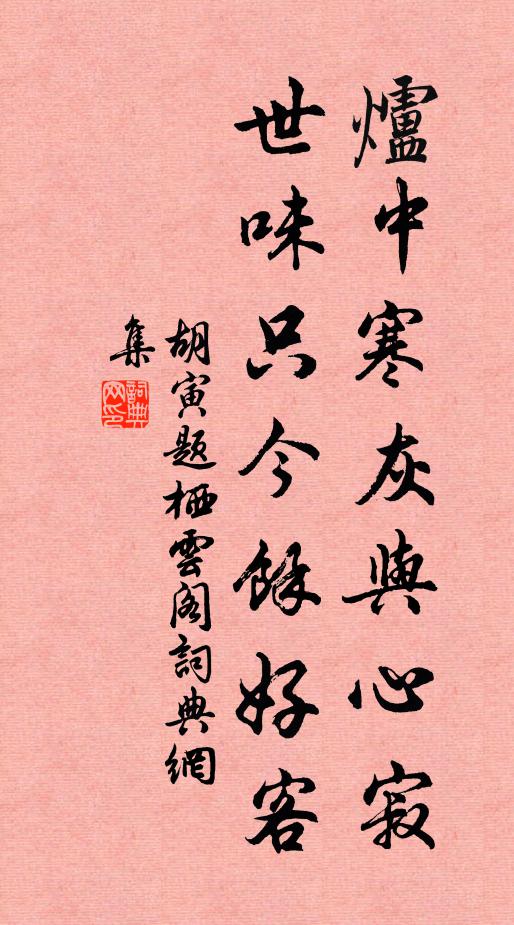 爐中寒灰與心寂
世味只今餘好客
胡寅題栖雲阁詞典網
集
詞典
网印